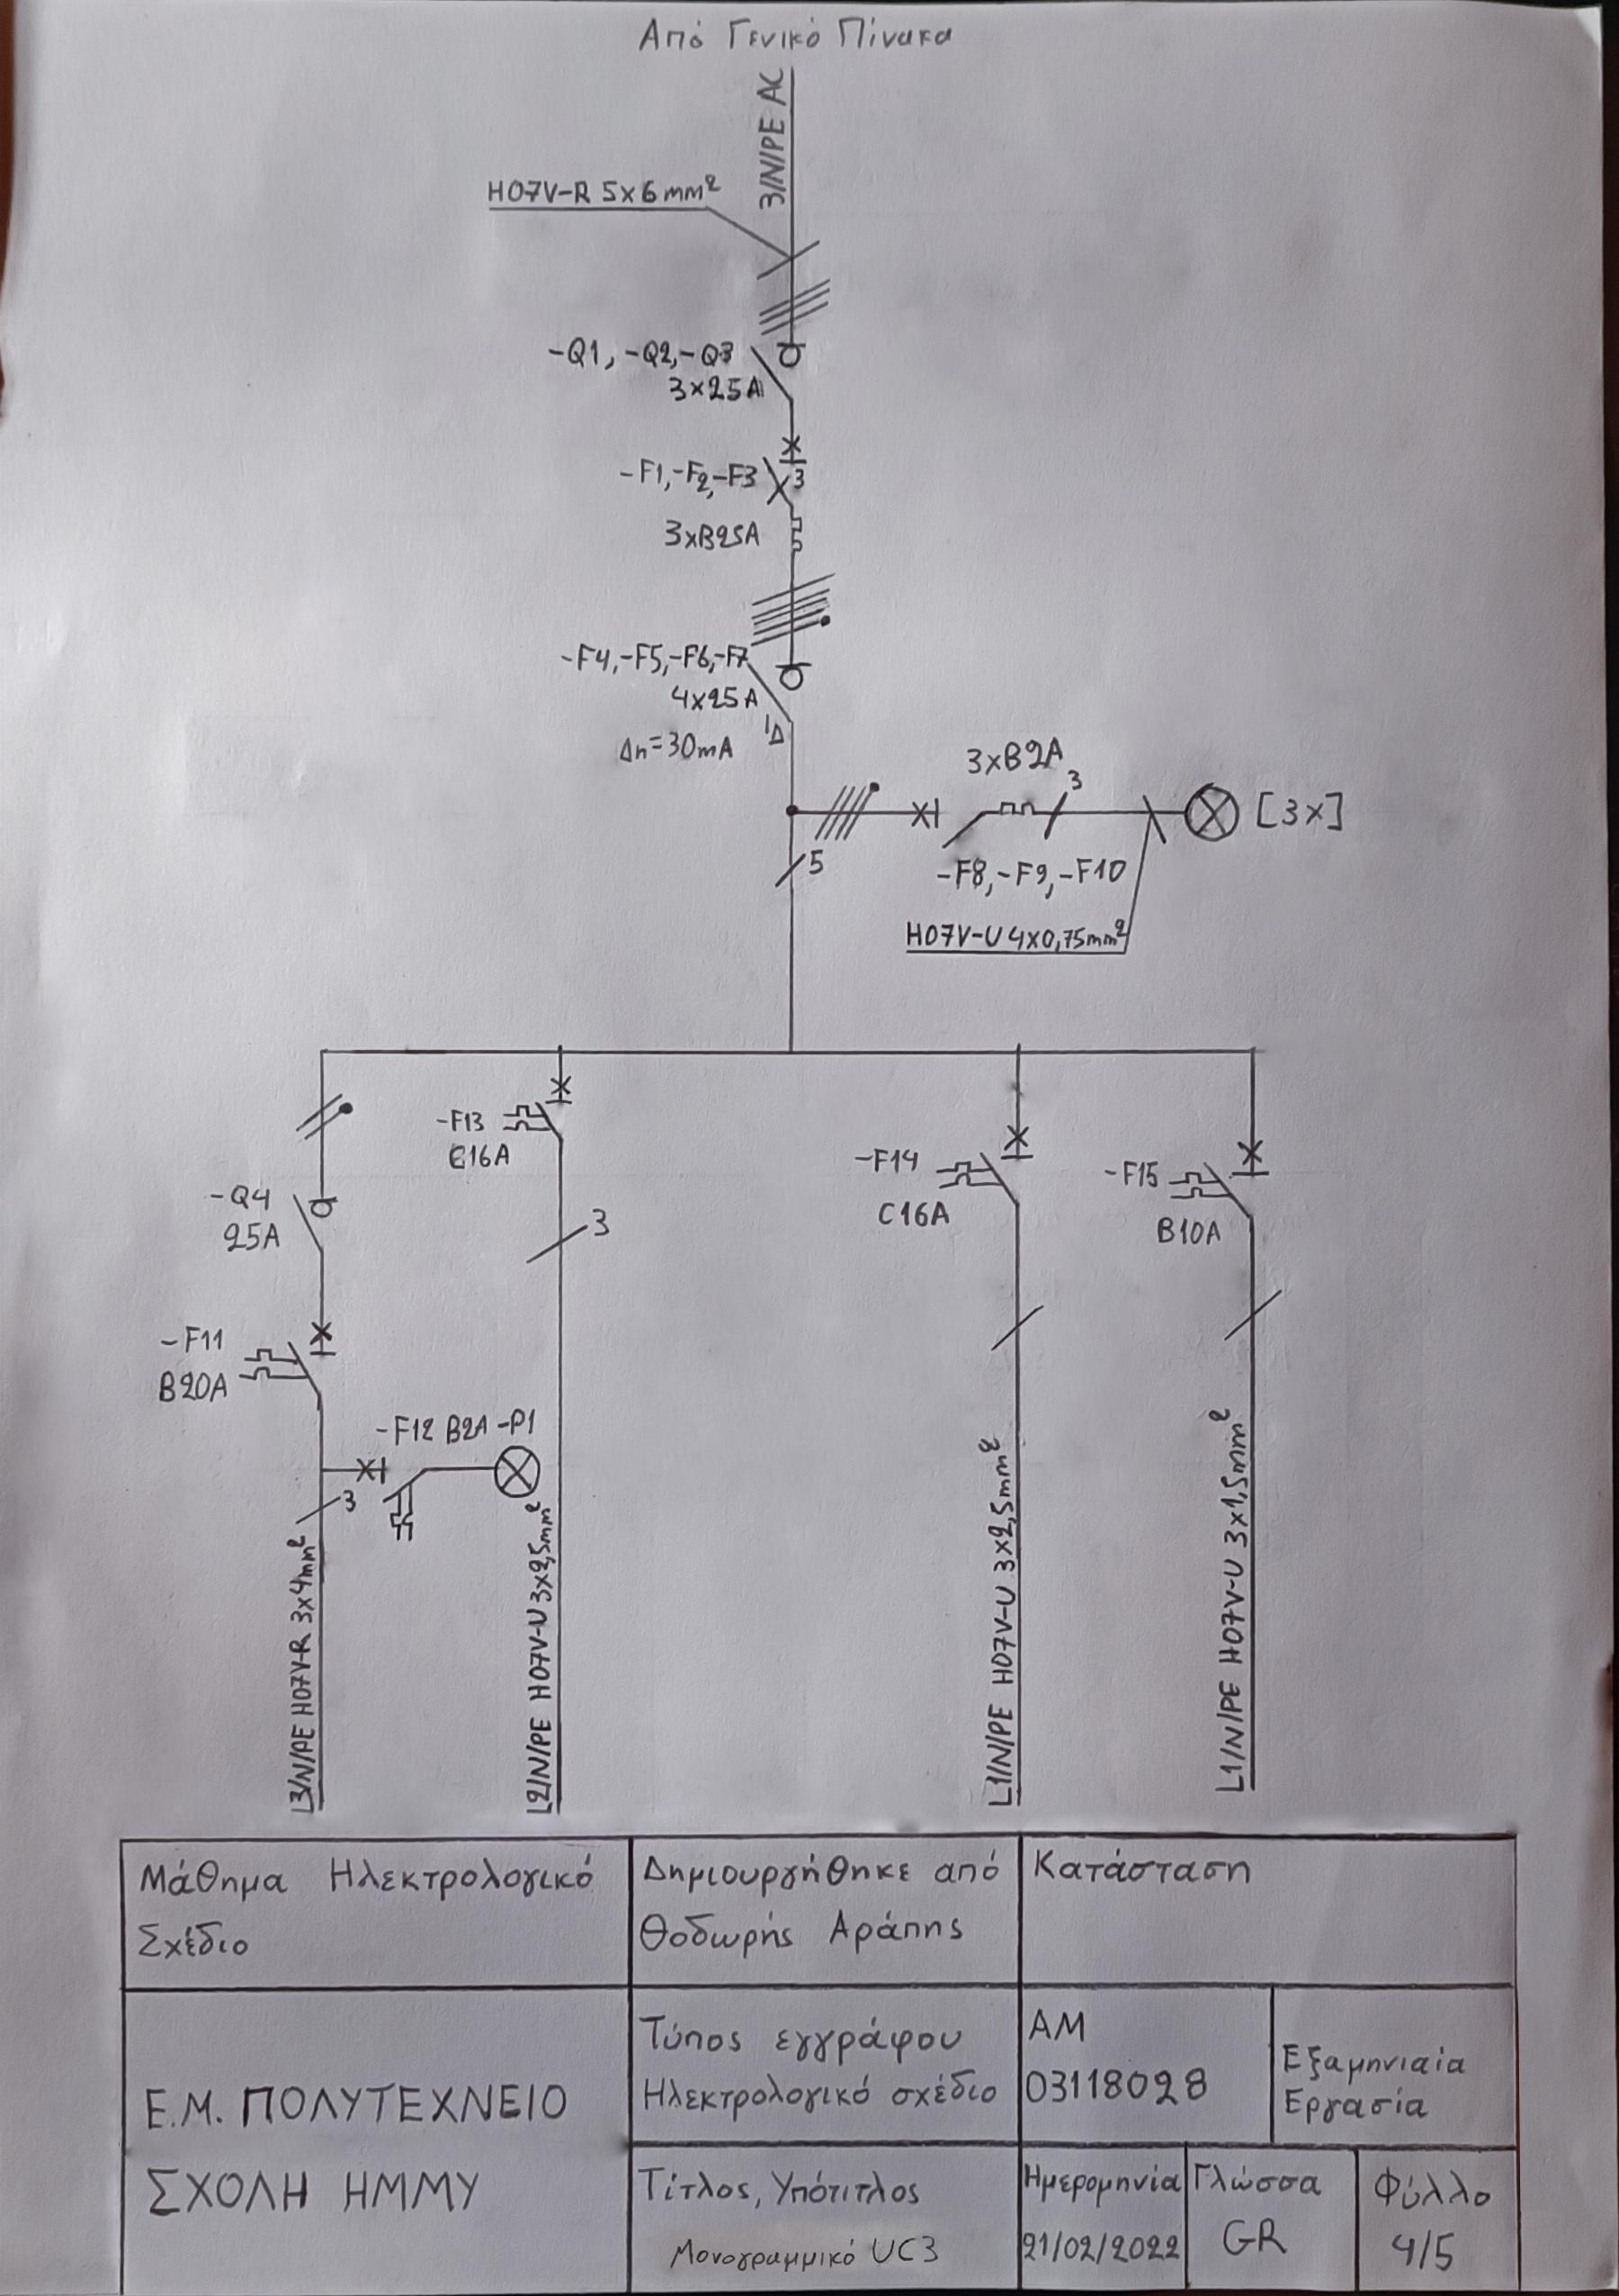 Από Γενικό Πίνακα
3/N/PE AC
H07V-R 5x6mm²
-Q1, -Q2,-Q3
3x25A
-F1,-F2,-F3
3
3xB25A
-F4,-F5,-F6,-F7
4x25A
Δn=30mA
Δ
3xB2A
3
[3x]
-F8,-F9,-F10
5
H07V-U 4x0,75mm²
-F13
C16A
-F14
C16A
-F15
B10A
-Q4
25A
3
-F11
B20A
-F12 B2A -P1
3
L3/N/PE H07V-R 3x4mm²
L2/N/PE H07V-U 3x2,5mm²
L1/N/PE H07V-U 3x2,5mm²
L1/N/PE H07V-U 3x1,5mm²
Μάθημα Ηλεκτρολογικό
Σχέδιο
Δημιουργήθηκε από
Θοδωρής Αράπης
Κατάσταση
Ε.Μ. ΠΟΛΥΤΕΧΝΕΙΟ
ΣΧΟΛΗ ΗΜΜΥ
Τύπος εγγράφου
Ηλεκτρολογικό σχέδιο
ΑΜ
03118028
Εξαμηνιαία
Εργασία
Τίτλος, Υπότιτλος
Μονογραμμικό UC3
Ημερομηνία
21/02/2022
Γλώσσα
GR
Φύλλο
4/5